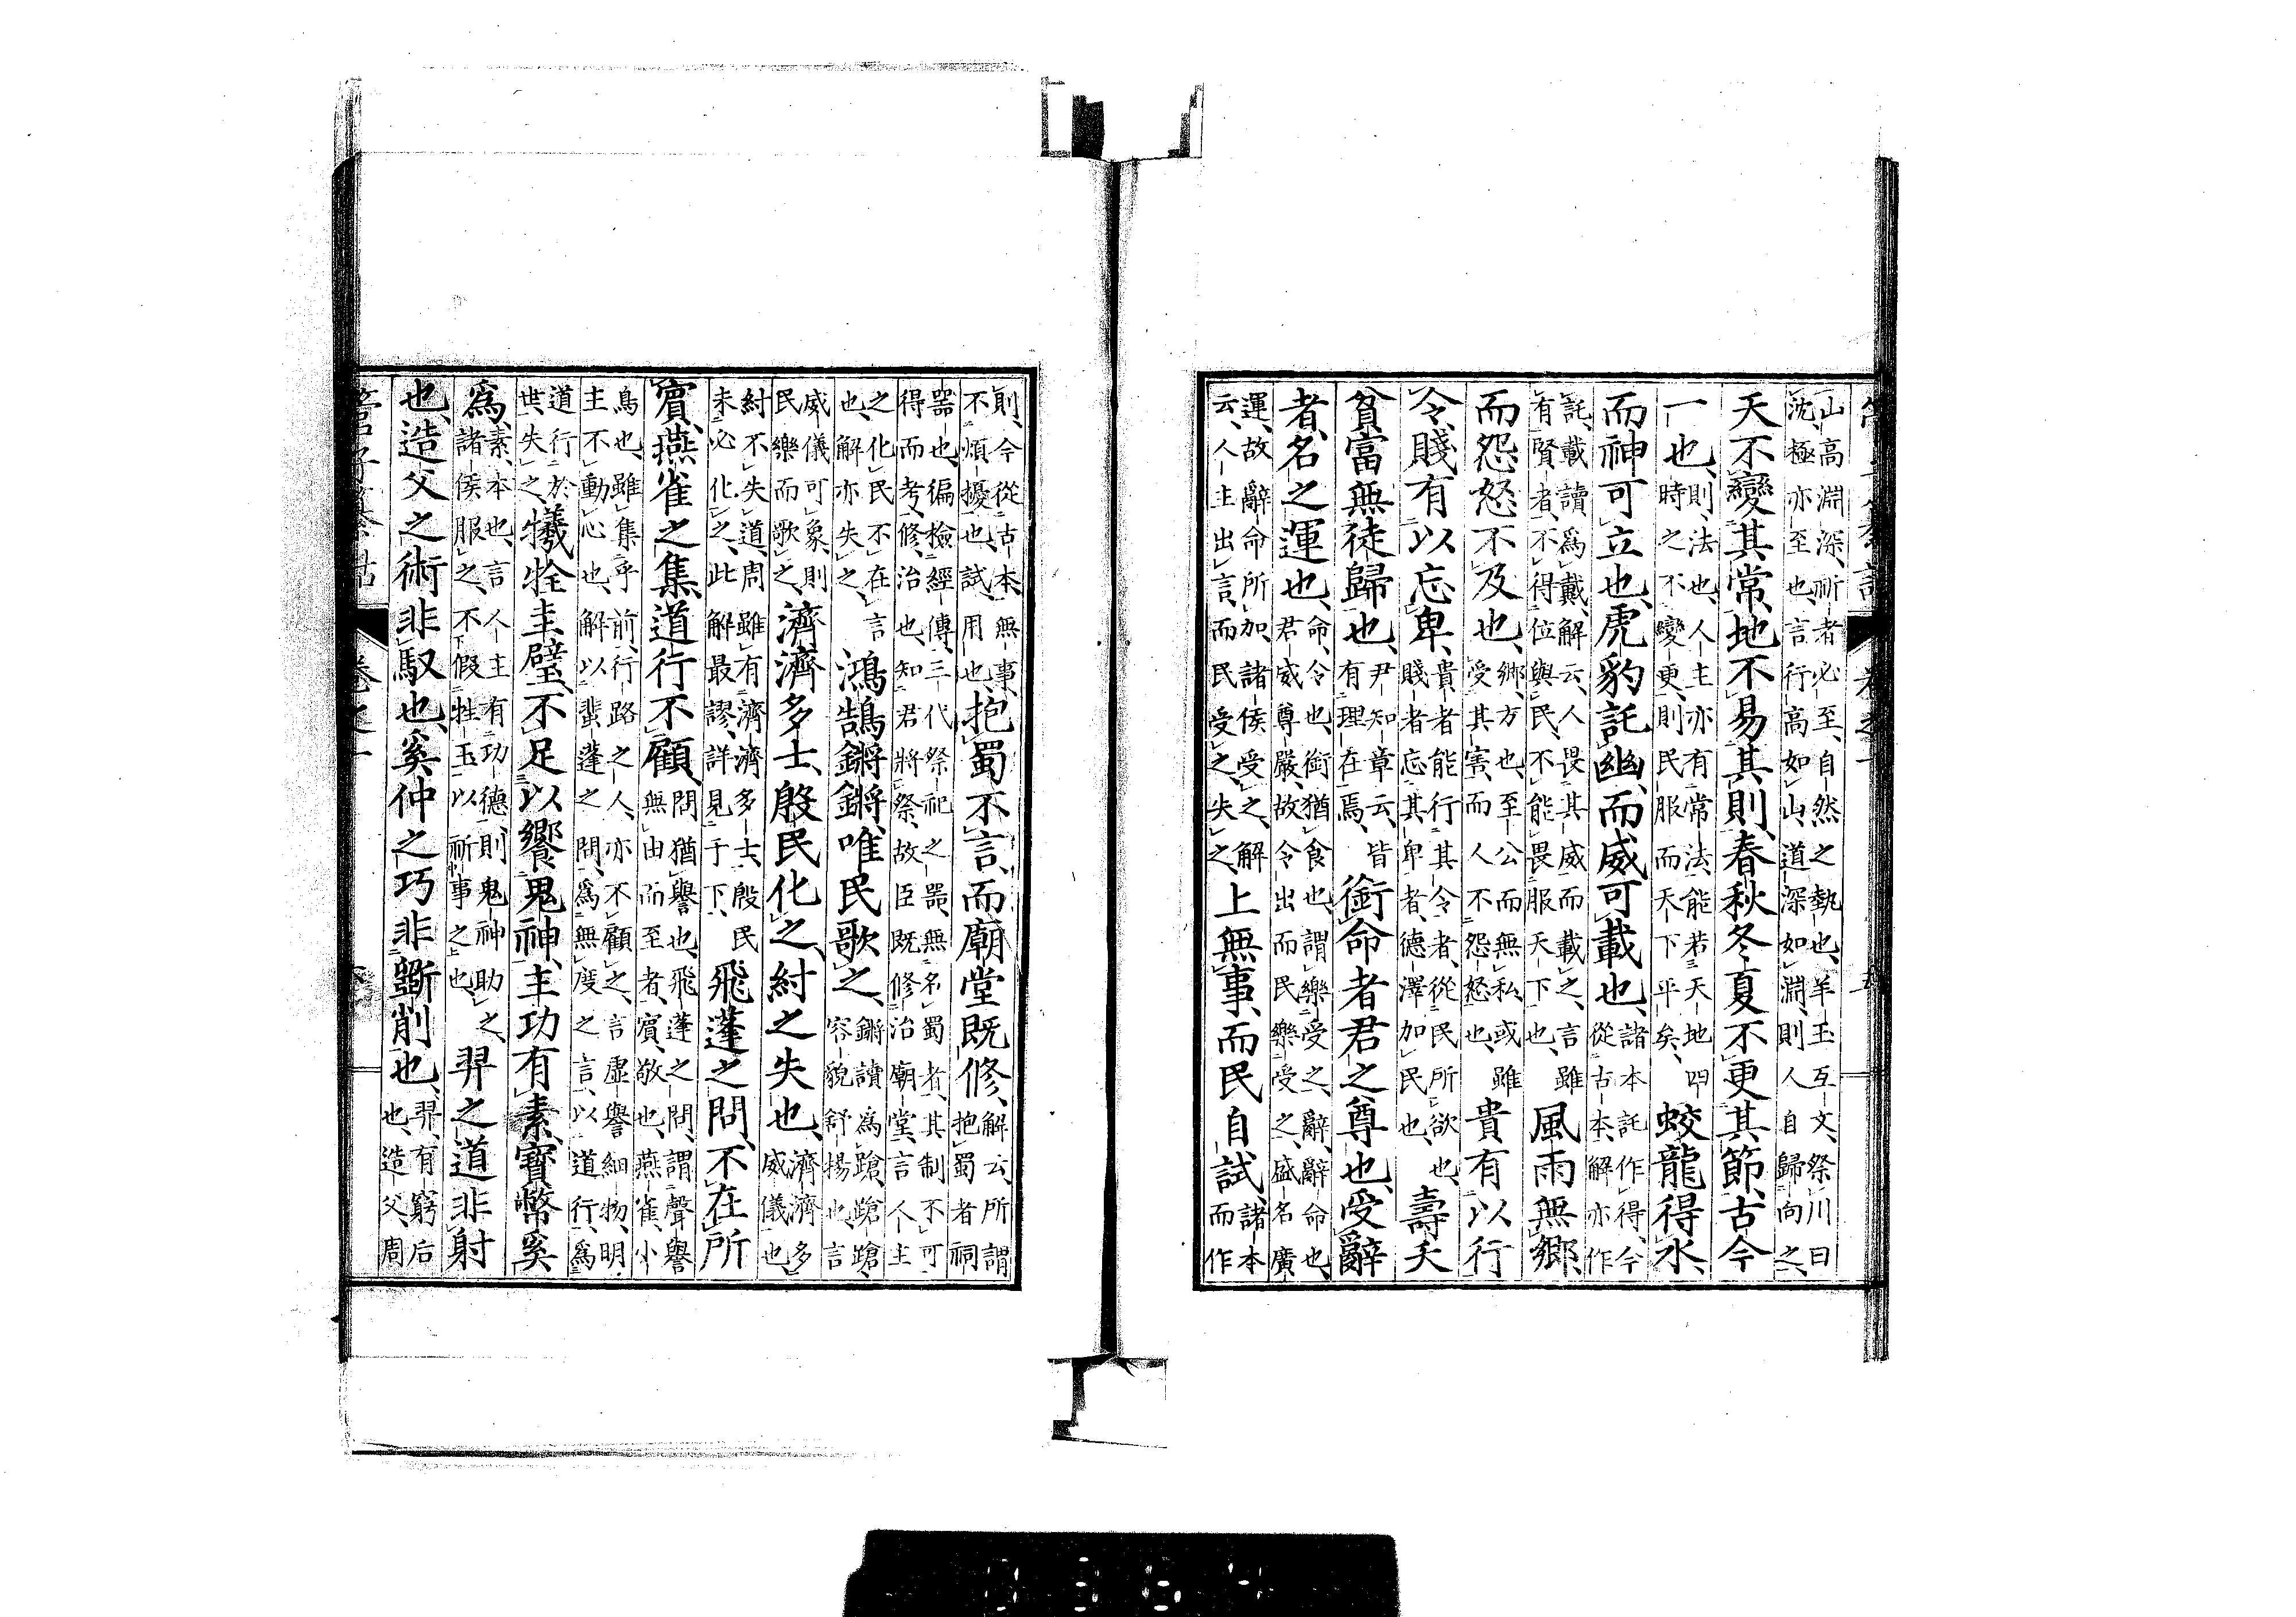 山高淵深、祈者必至、自然之勢也、羊玉互文、祭川曰
沈、極亦至也、言行高如山、道深如淵、則人自歸向之、
天不變其常、地不易其則、春秋冬夏不更其節、古今
一也、則、法也、人主亦有常法、能若天地四時之不變更、則民服而天下平矣、蛟龍得水、
而神可立也、虎豹託幽、而威可載也、諸本託作得、今從古本、解亦作
託、載讀爲戴、解云、人畏其威而載之、言雖有賢者、不得位與民、不能畏服天下也、風雨無鄉、
而怨怒不及也、鄉、方也、至公而無私、或雖受其害、而人不怨怒也、貴有以行
令、賤有以忘卑、貴者能行其令者、從民所欲也、賤者忘其卑者、德澤加民也、壽夭
貧富、無徒歸也、尹知章云、皆有理在焉、銜命者君之尊也、受辭
者、名之運也、命、令也、銜猶食也、謂樂受之、辭、辭命也、君威尊嚴、故令出而民樂受之、盛名廣
運、故辭命所加、諸侯受之、解云、人主出言、而民受之、失之、上無事、而民自試、諸本而作
則、今從古本、無事、不煩擾也、試、用也、抱蜀不言、而廟堂既修、解云、所謂抱蜀者祠
器也、徧檢經傳、三代祭祀之器、無名蜀者、其制不可
得而考、修、治也、知君將祭、故臣既修治廟堂、言人主
之化民、不在言也、解亦失之、鴻鵠鏘鏘、唯民歌之、鏘讀爲蹌、蹌蹌、容貌舒揚也、言
威儀可象、則民樂而歌之、濟濟多士、殷民化之、紂之失也、濟濟、多威儀也
紂不失道、周雖有濟濟多士、殷民未必化之、此解最謬、詳見于下、飛蓬之問、不在所
賓、燕雀之集、道行不顧、問猶譽也、飛蓬之問、謂聲譽無由而至者、賓、敬也、燕雀、小
鳥也、雖集乎前、行路之人、亦不顧之、言虛譽細物、明
主不動心也、解以蜚蓬之問、爲無度之言、以道行、爲
道行於世、失之、犧牷圭璧、不足以饗鬼神、主功有素、寶幣奚
爲、素、本也、言人主有功德、則鬼神助之、諸侯服之、不假牲玉以祈事之也、羿之道非射
也、造父之術非馭也、奚仲之巧非斲削也、羿、有窮后也、造父、周
管子纂詁 卷之一